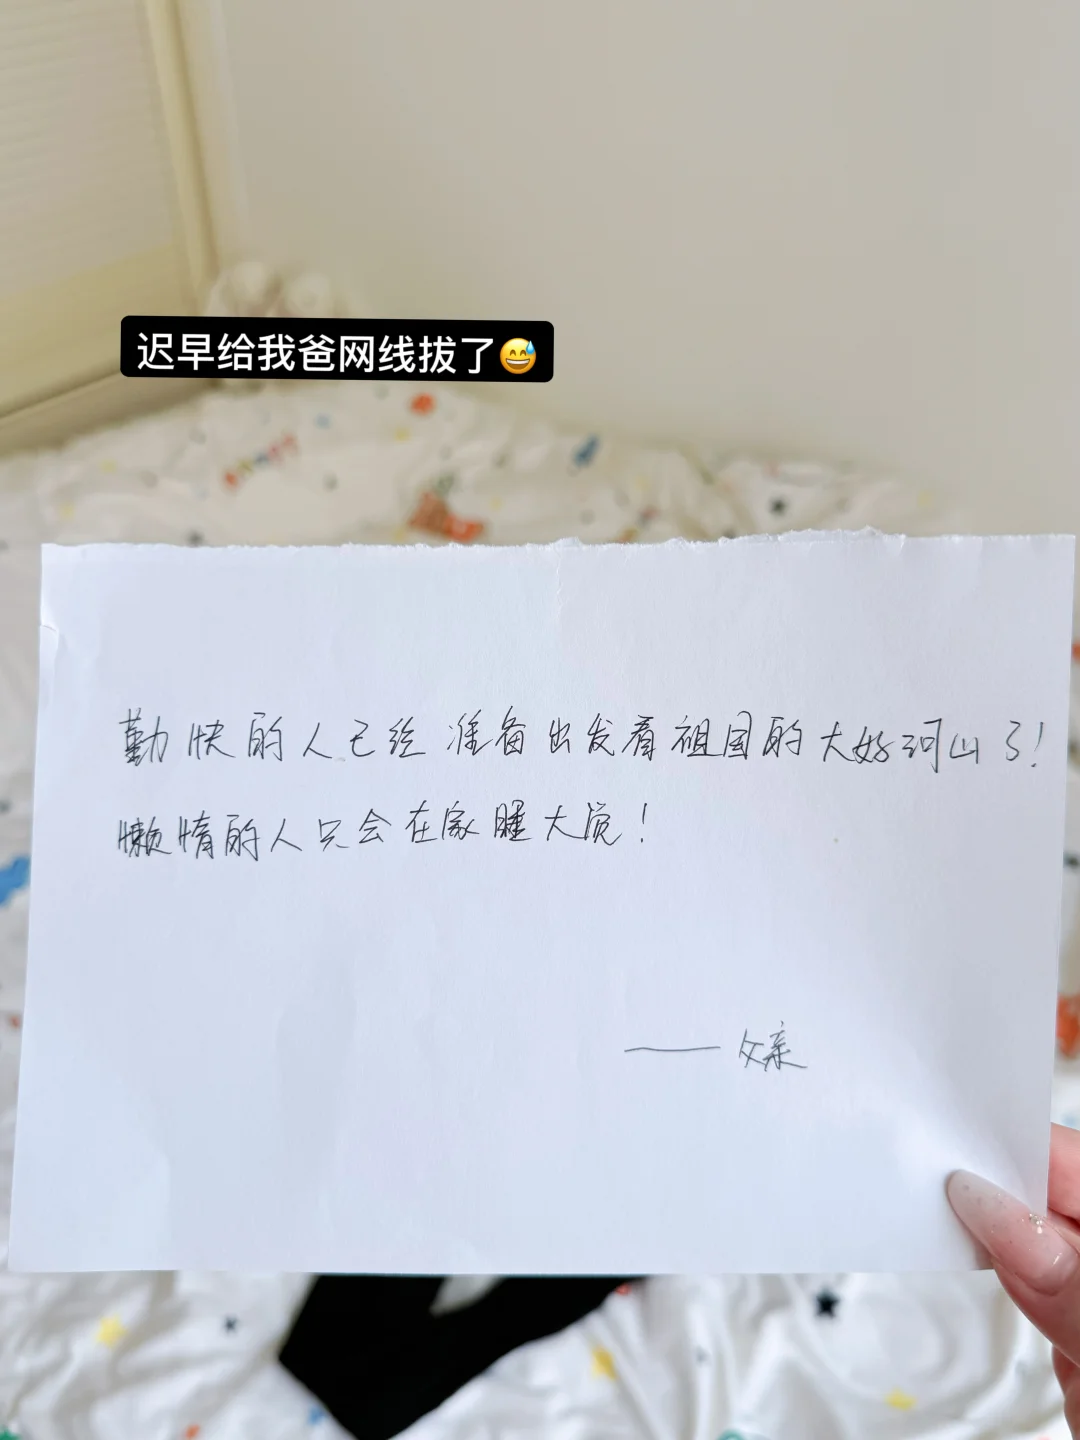 迟早给我爸网线拔了😅
勤快的人已经准备出发看祖国的大好河山了！
懒惰的人只会在家睡大觉！
——父亲